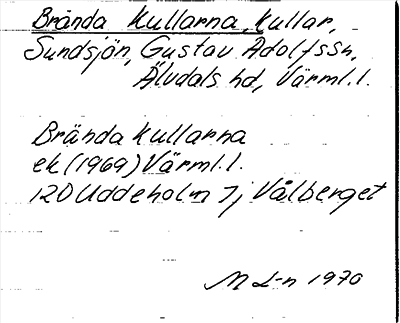 Brända Kullarna, kullar,
Sundsjön, Gustav Adolfs sn,
Älvdals hd, Värml. l.
Brända Kullarna
ek (1969) Värml. l.
12D Uddeholm 7j Vålberget
M L-n 1970